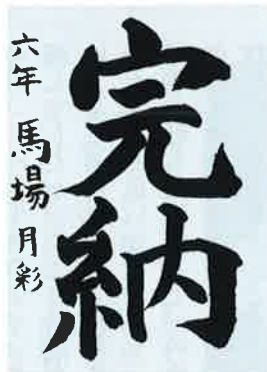 完納
六年 馬場 月彩